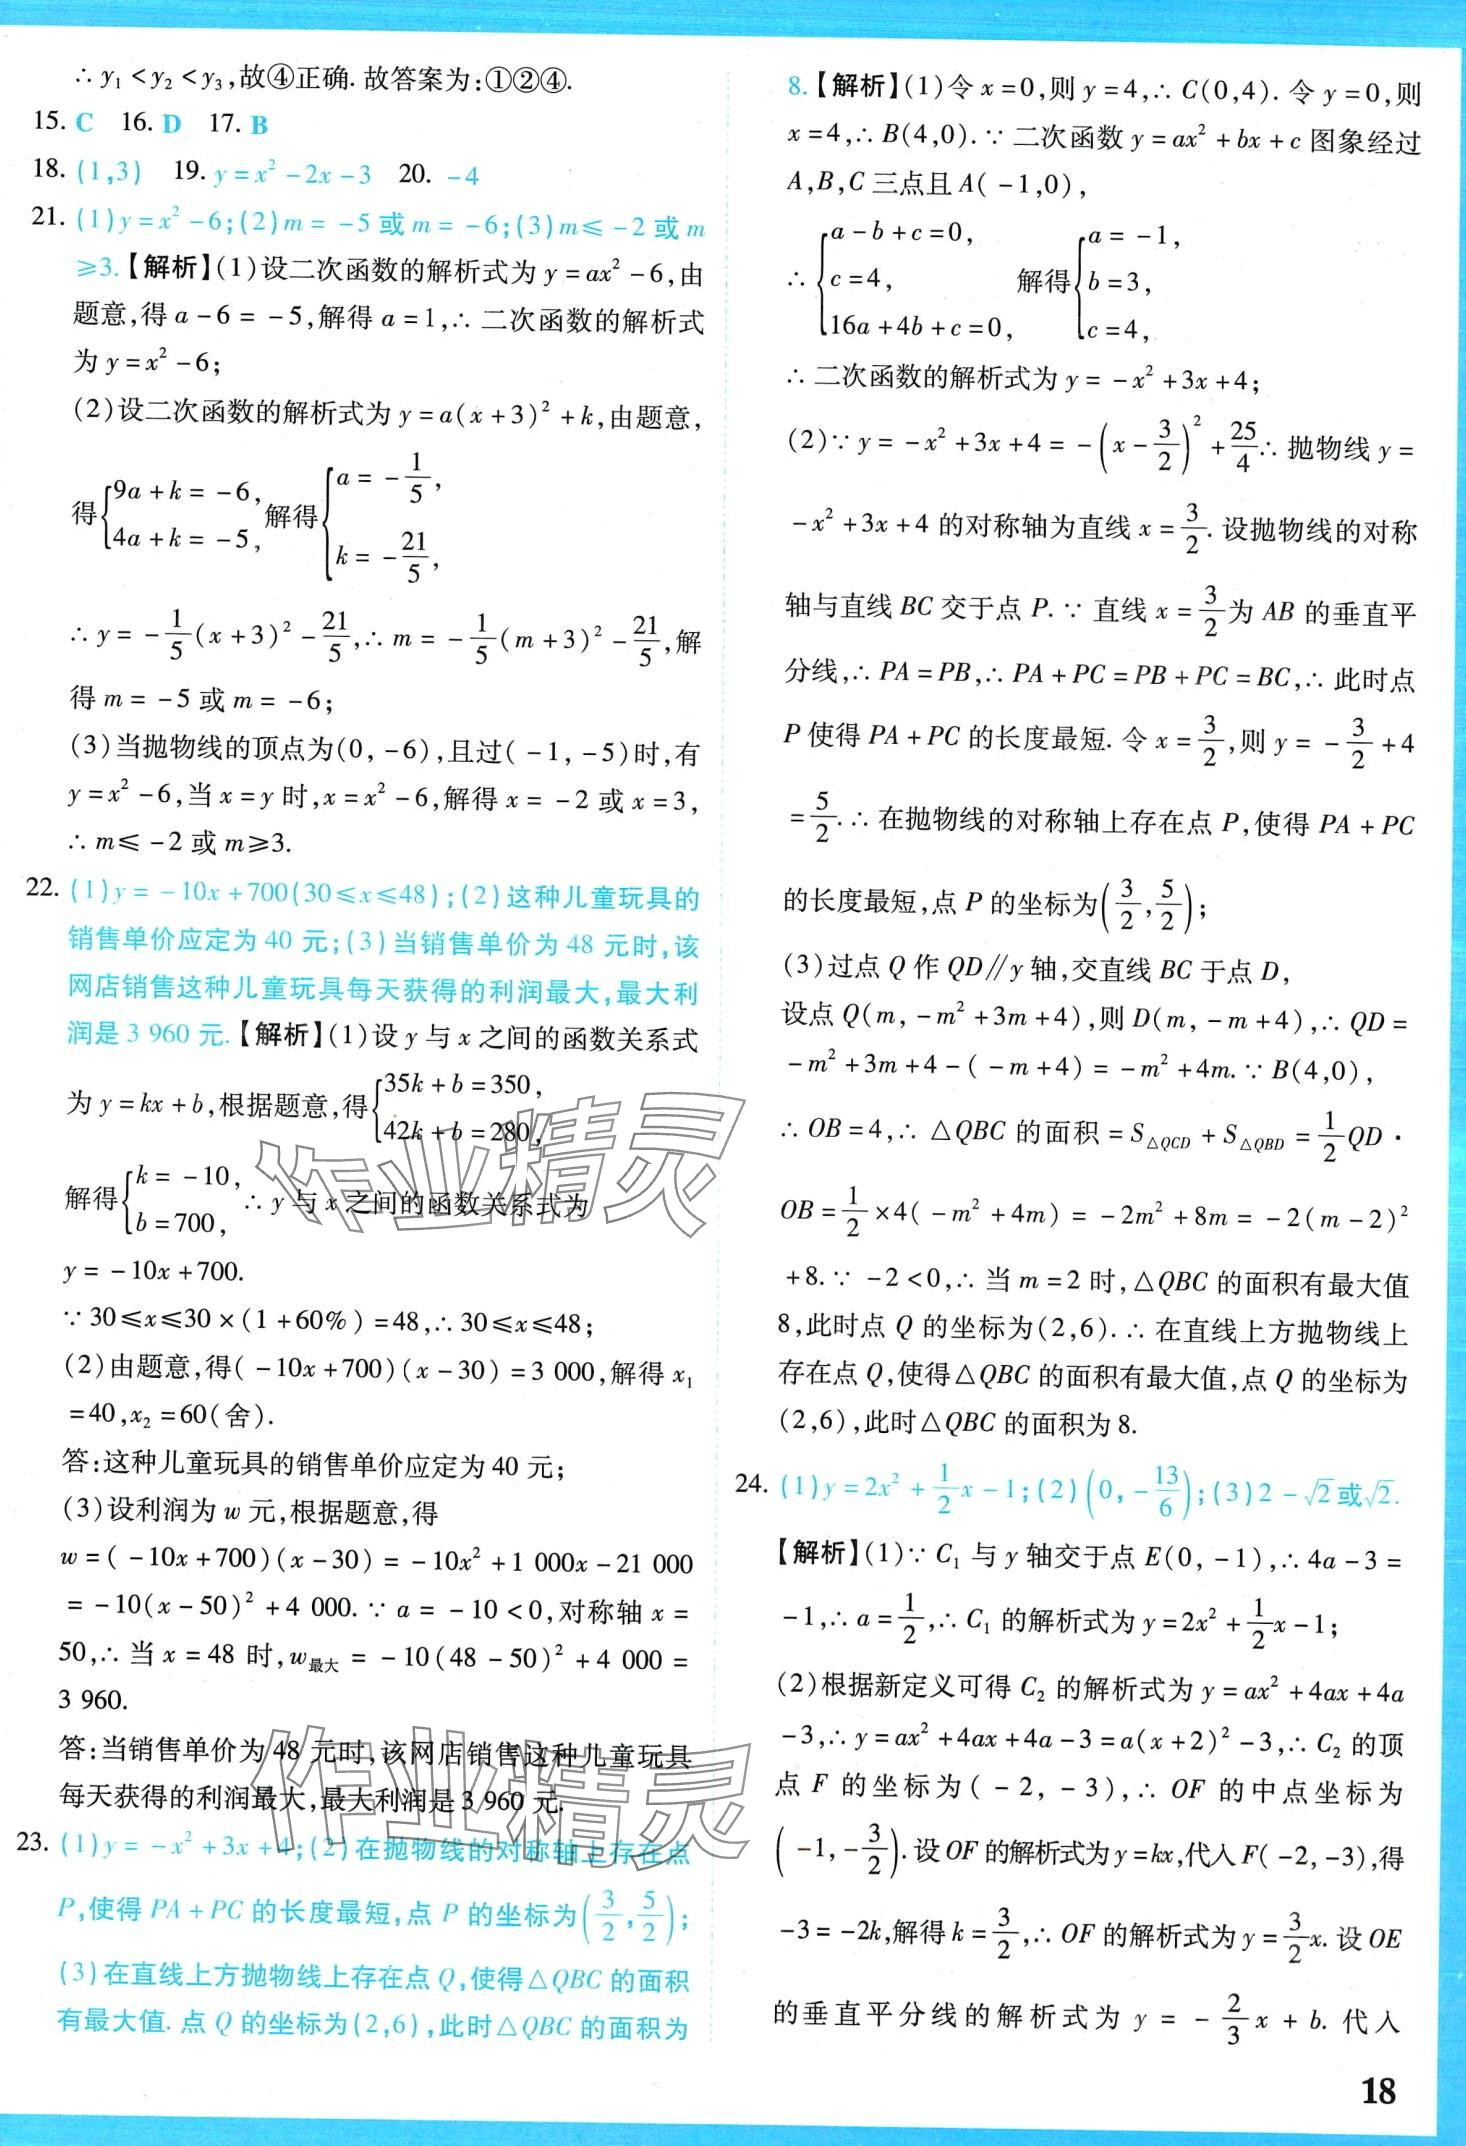 ∴ y₁ < y₂ < y₃,故④正确. 故答案为:①②④.
15. C 16. D 17. B
18. (1,3) 19. y = x² - 2x - 3 20. -4
21. (1)y = x² - 6;(2)m = -5 或 m = -6;(3)m ≤ -2 或 m
≥3.【解析】(1)设二次函数的解析式为 y = ax² - 6,由
题意,得 a - 6 = -5,解得 a = 1,∴ 二次函数的解析式
为 y = x² - 6;
(2)设二次函数的解析式为 y = a(x + 3)² + k,由题意,
得{9a + k = -6, 4a + k = -5, 解得{a = -1/5, k = -21/5,
∴ y = -1/5(x + 3)² - 21/5,∴ m = -1/5(m + 3)² - 21/5,解
得 m = -5 或 m = -6;
(3)当抛物线的顶点为(0, -6),且过(-1, -5)时,有
y = x² - 6,当 x = y 时,x = x² - 6,解得 x = -2 或 x = 3,
∴ m ≤ -2 或 m ≥ 3.
22. (1)y = -10x + 700(30 ≤ x ≤ 48);(2)这种儿童玩具的
销售单价应定为 40 元;(3)当销售单价为 48 元时,该
网店销售这种儿童玩具每天获得的利润最大,最大利
润是 3 960 元.【解析】(1)设 y 与 x 之间的函数关系式
为 y = kx + b,根据题意,得{35k + b = 350, 42k + b = 280,
解得{k = -10, b = 700, ∴ y 与 x 之间的函数关系式为
y = -10x + 700.
∵ 30 ≤ x ≤ 30 × (1 + 60%) = 48,∴ 30 ≤ x ≤ 48;
(2)由题意,得(-10x + 700)(x - 30) = 3 000,解得 x₁
= 40,x₂ = 60(舍).
答:这种儿童玩具的销售单价应定为 40 元;
(3)设利润为 w 元,根据题意,得
w = (-10x + 700)(x - 30) = -10x² + 1 000x - 21 000
= -10(x - 50)² + 4 000. ∵ a = -10 < 0,对称轴 x =
50,∴ 当 x = 48 时,w最大 = -10(48 - 50)² + 4 000 =
3 960.
答:当销售单价为 48 元时,该网店销售这种儿童玩具
每天获得的利润最大,最大利润是 3 960 元.
23. (1)y = -x² + 3x + 4;(2)在抛物线的对称轴上存在点
P,使得 PA + PC 的长度最短,点 P 的坐标为(3/2, 5/2);
(3)在直线上方抛物线上存在点 Q,使得△QBC 的面积
有最大值. 点 Q 的坐标为(2,6),此时△QBC 的面积为
8.【解析】(1)令 x = 0,则 y = 4,∴ C(0,4). 令 y = 0,则
x = 4,∴ B(4,0). ∵ 二次函数 y = ax² + bx + c 图象经过
A,B,C 三点且 A(-1,0),
∴ {a - b + c = 0, c = 4, 16a + 4b + c = 0, 解得{a = -1, b = 3, c = 4,
∴ 二次函数的解析式为 y = -x² + 3x + 4;
(2)∵ y = -x² + 3x + 4 = -(x - 3/2)² + 25/4 ∴ 抛物线 y =
-x² + 3x + 4 的对称轴为直线 x = 3/2. 设抛物线的对称
轴与直线 BC 交于点 P. ∵ 直线 x = 3/2 为 AB 的垂直平
分线,∴ PA = PB,∴ PA + PC = PB + PC = BC,∴ 此时点
P 使得 PA + PC 的长度最短. 令 x = 3/2,则 y = -3/2 + 4
= 5/2. ∴ 在抛物线的对称轴上存在点 P,使得 PA + PC
的长度最短,点 P 的坐标为(3/2, 5/2);
(3)过点 Q 作 QD∥y 轴,交直线 BC 于点 D,
设点 Q(m, -m² + 3m + 4),则 D(m, -m + 4),∴ QD =
-m² + 3m + 4 - (-m + 4) = -m² + 4m. ∵ B(4,0),
∴ OB = 4,∴ △QBC 的面积 = S△QCD + S△QBD = 1/2 QD ·
OB = 1/2 × 4(-m² + 4m) = -2m² + 8m = -2(m - 2)²
+ 8. ∵ -2 < 0,∴ 当 m = 2 时,△QBC 的面积有最大值
8,此时点 Q 的坐标为(2,6). ∴ 在直线上方抛物线上
存在点 Q,使得△QBC 的面积有最大值,点 Q 的坐标为
(2,6),此时△QBC 的面积为 8.
24. (1)y = 2x² + 1/2x - 1;(2)(0, -13/6);(3)2 - √2或√2.
【解析】(1)∵ C₁ 与 y 轴交于点 E(0, -1),∴ 4a - 3 =
-1,∴ a = 1/2,∴ C₁ 的解析式为 y = 2x² + 1/2x - 1;
(2)根据新定义可得 C₂ 的解析式为 y = ax² + 4ax + 4a
- 3,∴ y = ax² + 4ax + 4a - 3 = a(x + 2)² - 3,∴ C₂ 的顶
点 F 的坐标为(-2, -3),∴ OF 的中点坐标为
(-1, -3/2). 设 OF 的解析式为 y = kx,代入 F(-2, -3),得
-3 = -2k,解得 k = 3/2,∴ OF 的解析式为 y = 3/2x. 设 OE
的垂直平分线的解析式为 y = -2/3x + b. 代入
18
作业精灵
作业精灵